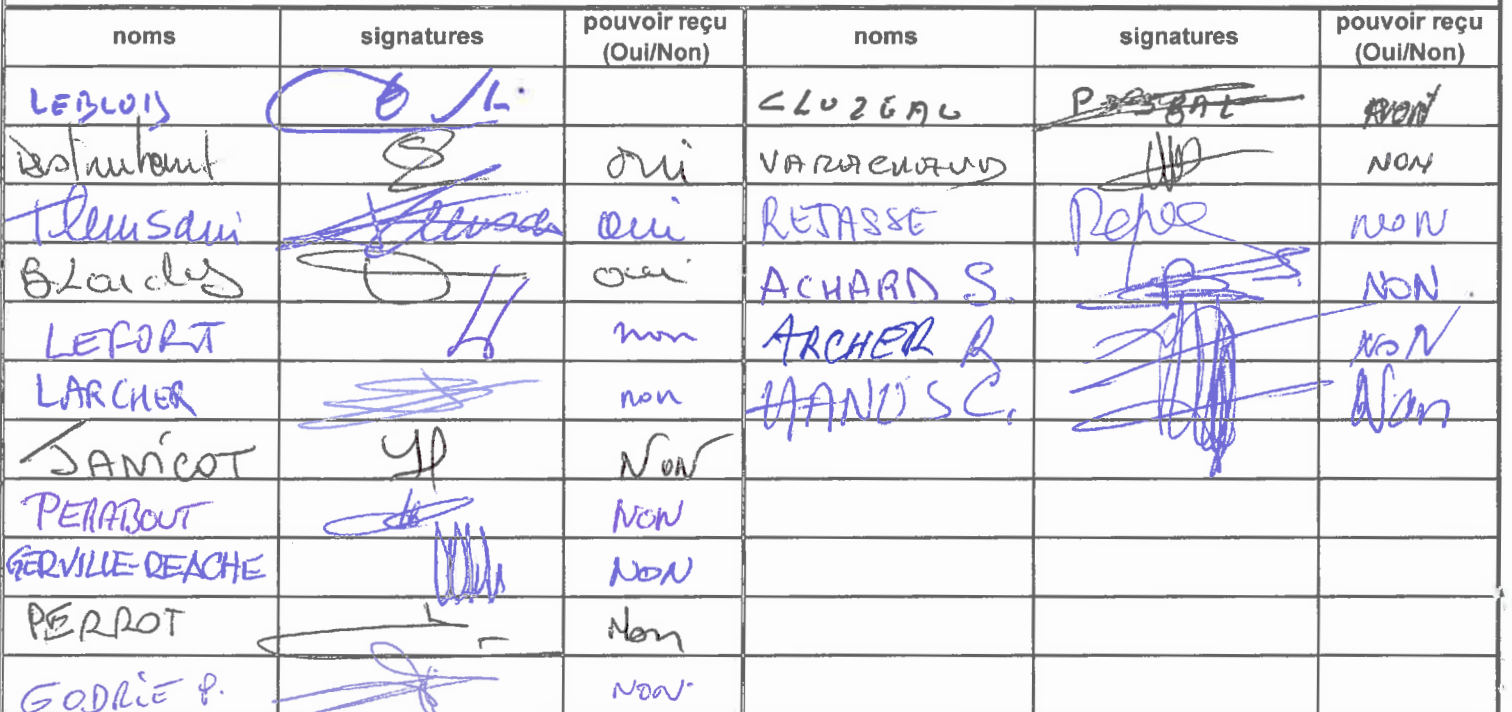 noms signatures pouvoir reçu (Oui/Non) noms signatures pouvoir reçu (Oui/Non)
LEBLOIS CLUZEAU NON
oui VARACHAUD NON
Tlemsani oui REJASSE NON
oui ACHARD S. NON
LEFORT non ARCHER R NON
LARCHER non HANUS C. Non
JANICOT NON
PERABOUT NON
GERVILLE-REACHE NON
PERROT Non
GODRIE P. NON